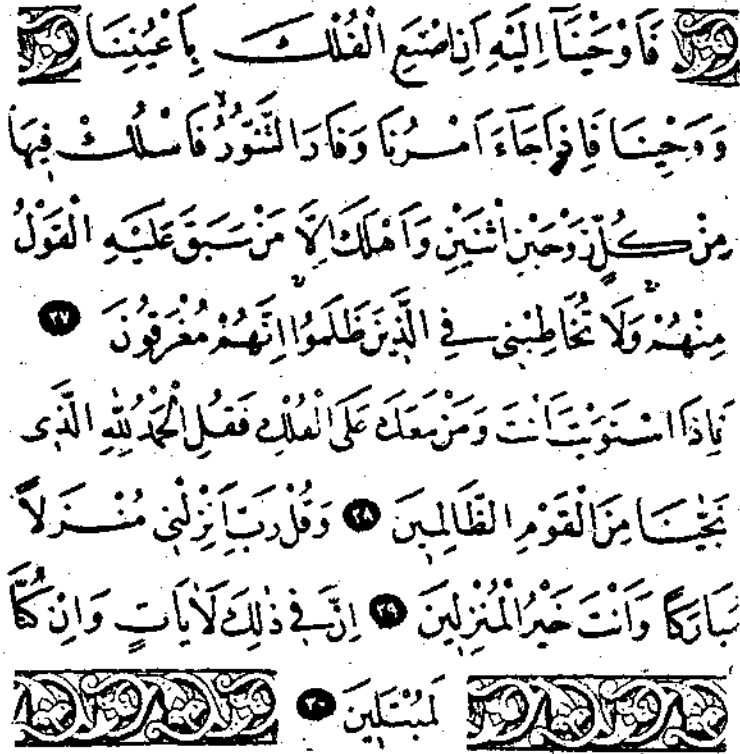 فَاَوْحَيْنَآ اِلَيْهِ اَنِ اصْنَعِ الْفُلْكَ بِاَعْيُنِنَا
وَوَحْيِنَا فَاِذَا جَآءَ اَمْرُنَا وَفَارَ التَّنُّورُۙ فَاسْلُكْ فِيهَا
مِنْ كُلٍّ زَوْجَيْنِ اثْنَيْنِ وَاَهْلَكَ اِلَّا مَنْ سَبَقَ عَلَيْهِ الْقَوْلُ
مِنْهُمْۚ وَلَا تُخَاطِبْنِى فِي الَّذِينَ ظَلَمُواۚ اِنَّهُمْ مُغْرَقُونَ ٢٧
فَاِذَا اسْتَوَيْتَ اَنْتَ وَمَنْ مَعَكَ عَلَى الْفُلْكِ فَقُلِ الْحَمْدُ لِلّٰهِ الَّذِى
نَجّٰينَا مِنَ الْقَوْمِ الظَّالِمِينَ ٢٨ وَقُلْ رَبِّ اَنْزِلْنِى مُنْزَلاً
مُبَارَكًا وَاَنْتَ خَيْرُ الْمُنْزِلِينَ ٢٩ اِنَّ فِي ذٰلِكَ لَاٰيَاتٍ وَاِنْ كُنَّا
لَمُبْتَلِينَ ٣٠